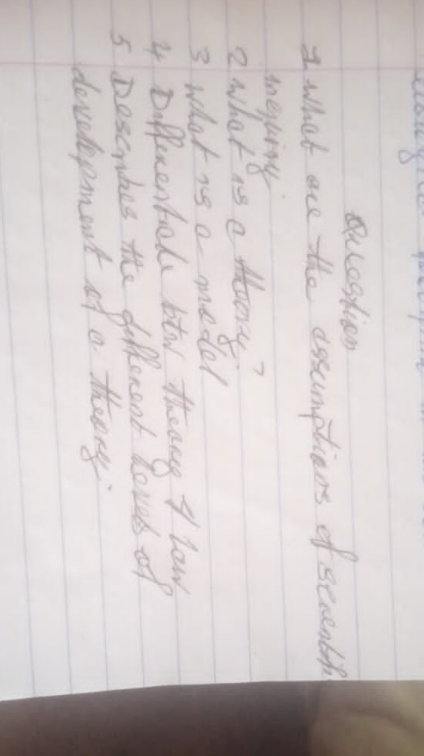 Question
1 What are the assumptions of scientific
inquiry
2 What is a theory?
3 What is a model
4 Differentiate btw theory & law
5 Describes the different levels of
development of a theory.